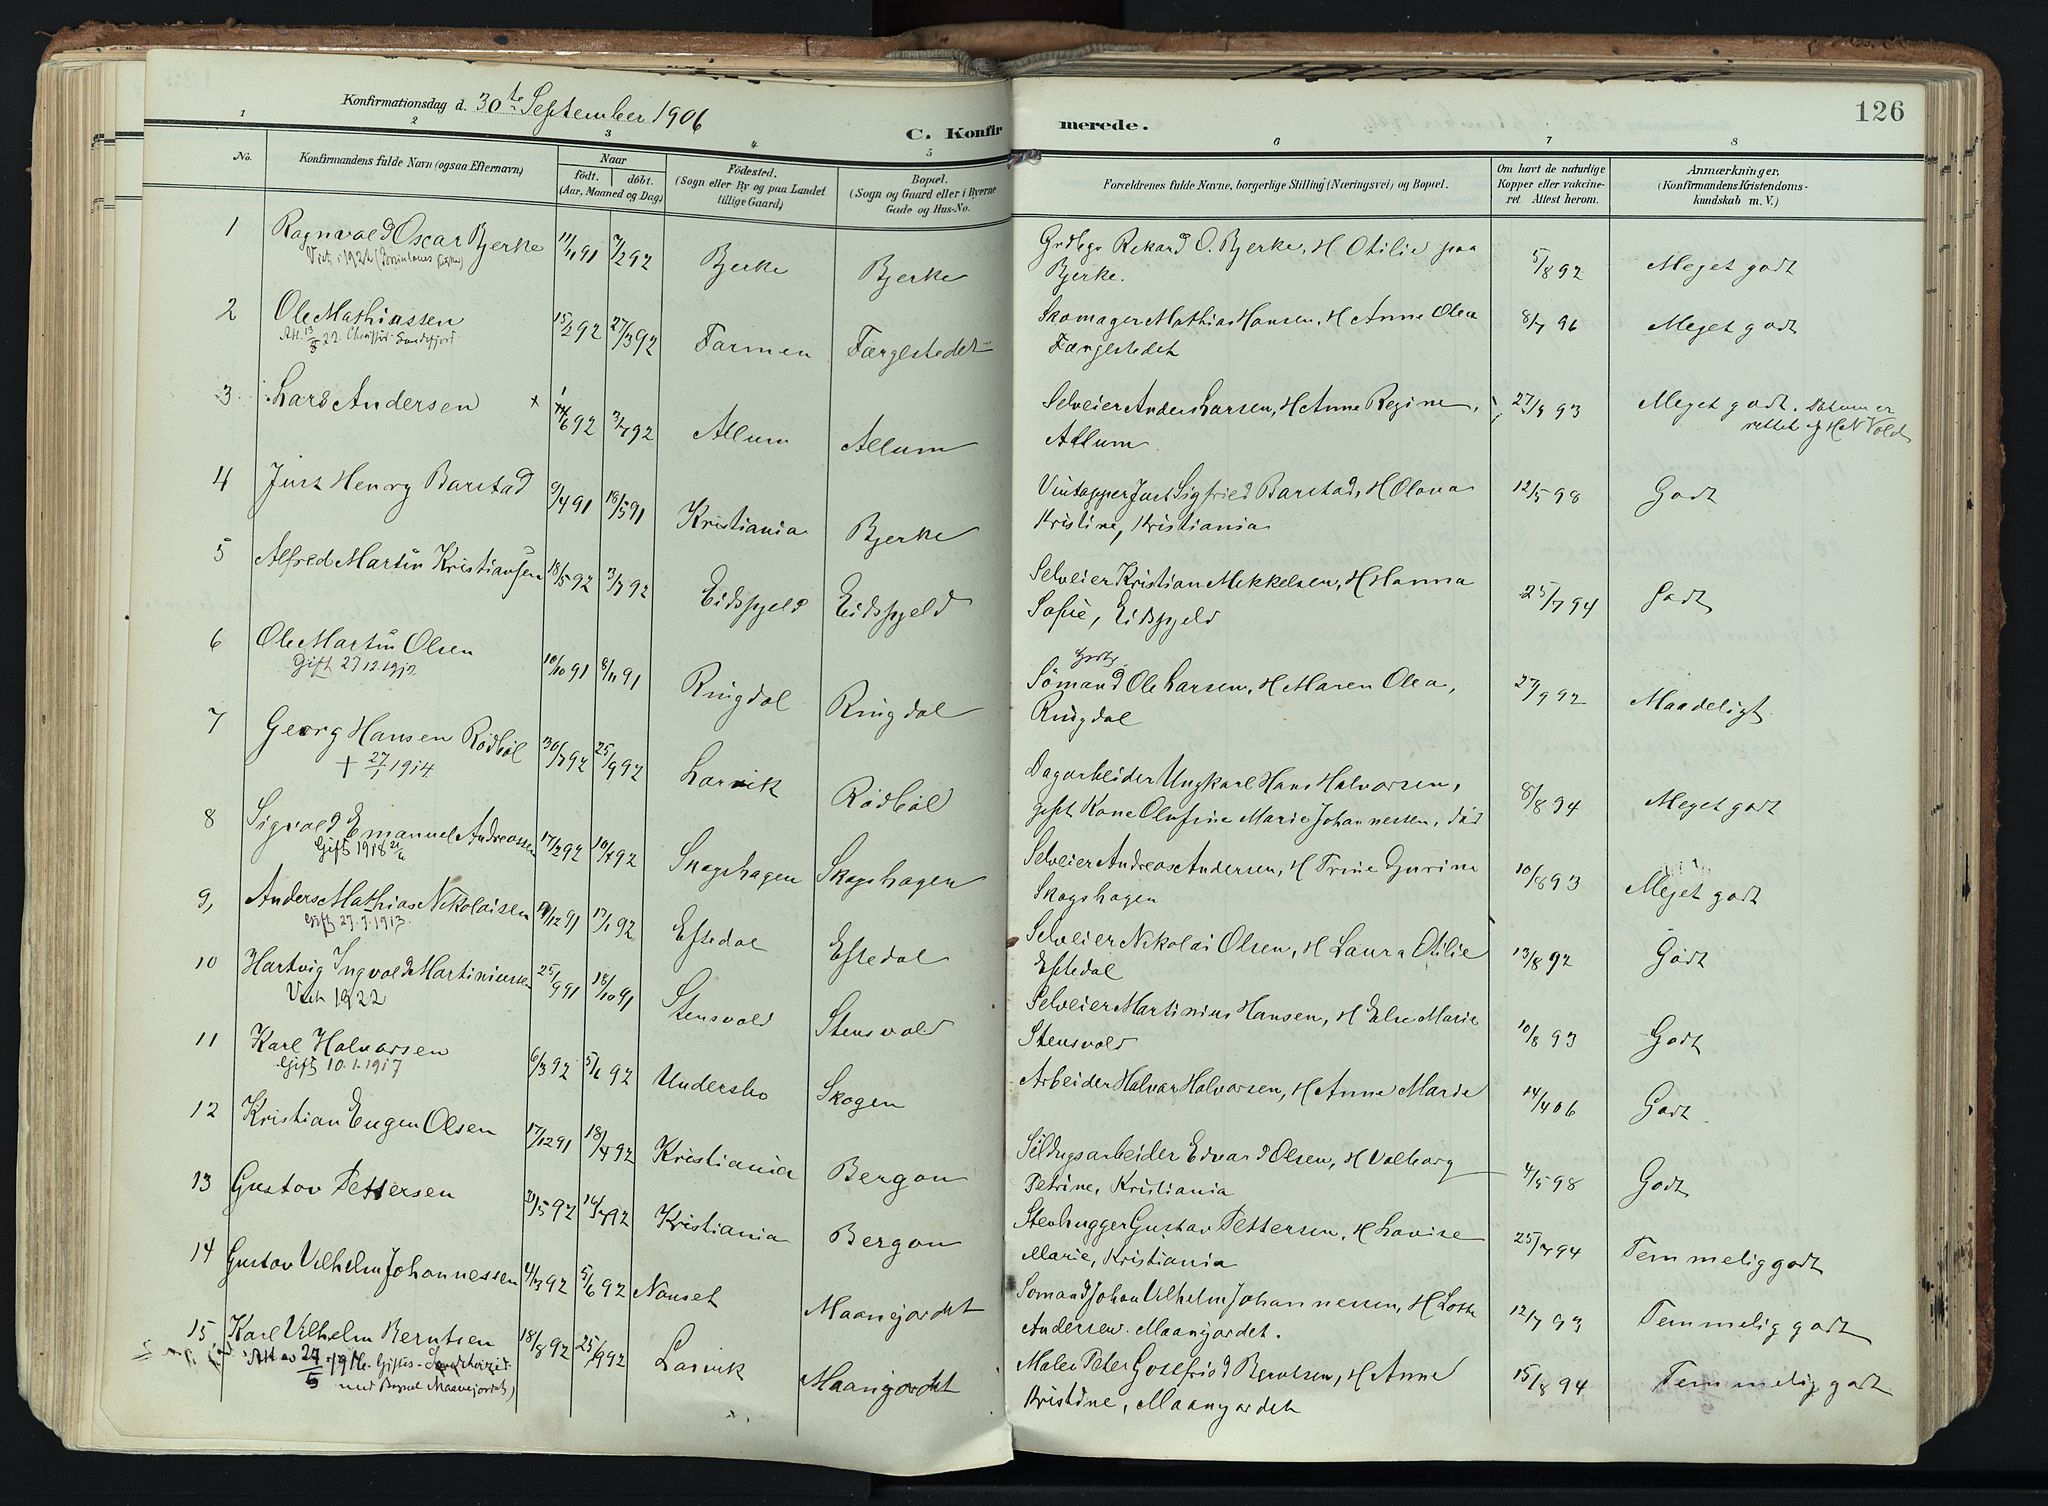 Konfirmationsdag d. 30te September 1906
C. Konfirmerede.
126
1 2 3 4 5 6 7 8
No. Konfirmandens fulde Navn (ogsaa Efternavn) Naar født. døbt. (Aar, Maaned og Dag) Fødested. (Sogn eller By og paa Landet tillige Gaard) Bopæl. (Sogn og Gaard eller i Byerne Gade og Hus-No. Forældrenes fulde Navne, borgerlige Stilling (Næringsvei) og Bopæl. Om havt de naturlige Kopper eller vaccineret. Attest herom. Anmærkninger, (Konfirmandens Kristendomskundskab m. V.)
1 Ragnvald Oscar Bjerke 7/2 92 Bjerke Bjerke Grdbgr Rikard O. Bjerke, H Otilie paa 5/8 92 Meget godt
Viet i 1922 Bjerke.
2 Ole Mathiassen 15/2 92 27/3 92 Farmen Færgestedet Skomager Mathias Hansen, H Anne Olea 8/7 96 Meget godt
Att. 13/5 22 Sandefjord. Færgestedet
3 Lars Andersen + 6 92 3/7 92 Allum Allum Selveier Anders Larsen, H Anne Regine, 93 Meget godt. Datum er
Allum rettet af HN Vold
4 Just Henry Barstad 9/4 91 18/5 91 Kristiania Bjerke Vintapper Just Sigfried Barstad, H Olava 12/5 98 Godt
Kristine, Kristiania
5 Alfred Martin Kristiansen 18/5 92 3/7 92 Eidsfjeld Eidsfjeld Selveier Kristian Mikkelsen, H Hanna 25/7 94 Godt
Sofie, Eidsfjeld
6 Ole Martin Olsen 10/10 91 8/11 91 Ringdal Ringdal Sømand Ole Larsen, H Maren Olea, 27/9 92 Maadeligt
Gift 27.12. Ringdal
7 Georg Hansen Rødbøl 30/7 92 25/9 92 Larvik Rødbøl Dagarbeider Ungkarl Hans Halvorsen, 8/8 94 Meget godt
+ 27/1 1914 gift Kone Olufine Marie Johannessen, død
8 Sigvald Emanuel Andreassen 17/2 92 10/4 92 Skogshagen Skogshagen Selveier Andreas Andersen, H Trine Gurine 10/8 93 Meget godt
Gift 1918 Skogshagen
9, Anders Mathias Nikolaisen 12 91 17/1 92 Eftedal Eftedal Selveier Nikolai Olsen, H Laura Otilie 13/8 92 Godt
Gift 27.7.1913. Eftedal
10 Hartvig Ingvald Martiniussen 25/9 91 18/10 91 Stensvold Stensvold Selveier Martinius Hansen, H Else Marie 10/8 93 Godt
Viet 1922 Stensvold
11 Karl Halvorsen 6/3 92 5/6 92 Undersbo Skogen Arbeider Halvar Halvorsen, H Anne Marie 14/4 06 Godt
Gift 10.1.1917
12 Kristian Eugen Olsen 17/12 91 18/4 92 Kristiania Bergan Edvard Olsen, H Valborg 4/5 98 Godt
Petrine, Kristiania
13 Gustav Pettersen 5 92 7 92 Kristiania Bergan Stenhugger Gustav Pettersen, H Lovise 25/7 94 Temmelig godt
Marie, Kristiania
14 Gustav Vilhelm Johannessen 4/3 92 5/6 92 Nanset Maanejordet Sømand Johan Vilhelm Johannessen, H Lotte 12/7 93 Temmelig godt
Andersen. Maanejordet.
15 Karl Vilhelm Berntsen 18/8 92 25/9 92 Larvik Maanejordet Maler Peter Gottfried Berntsen, H Anne 15/8 94 Temmelig godt
med Bopæl Maanejordet) Kristine, Maanejordet